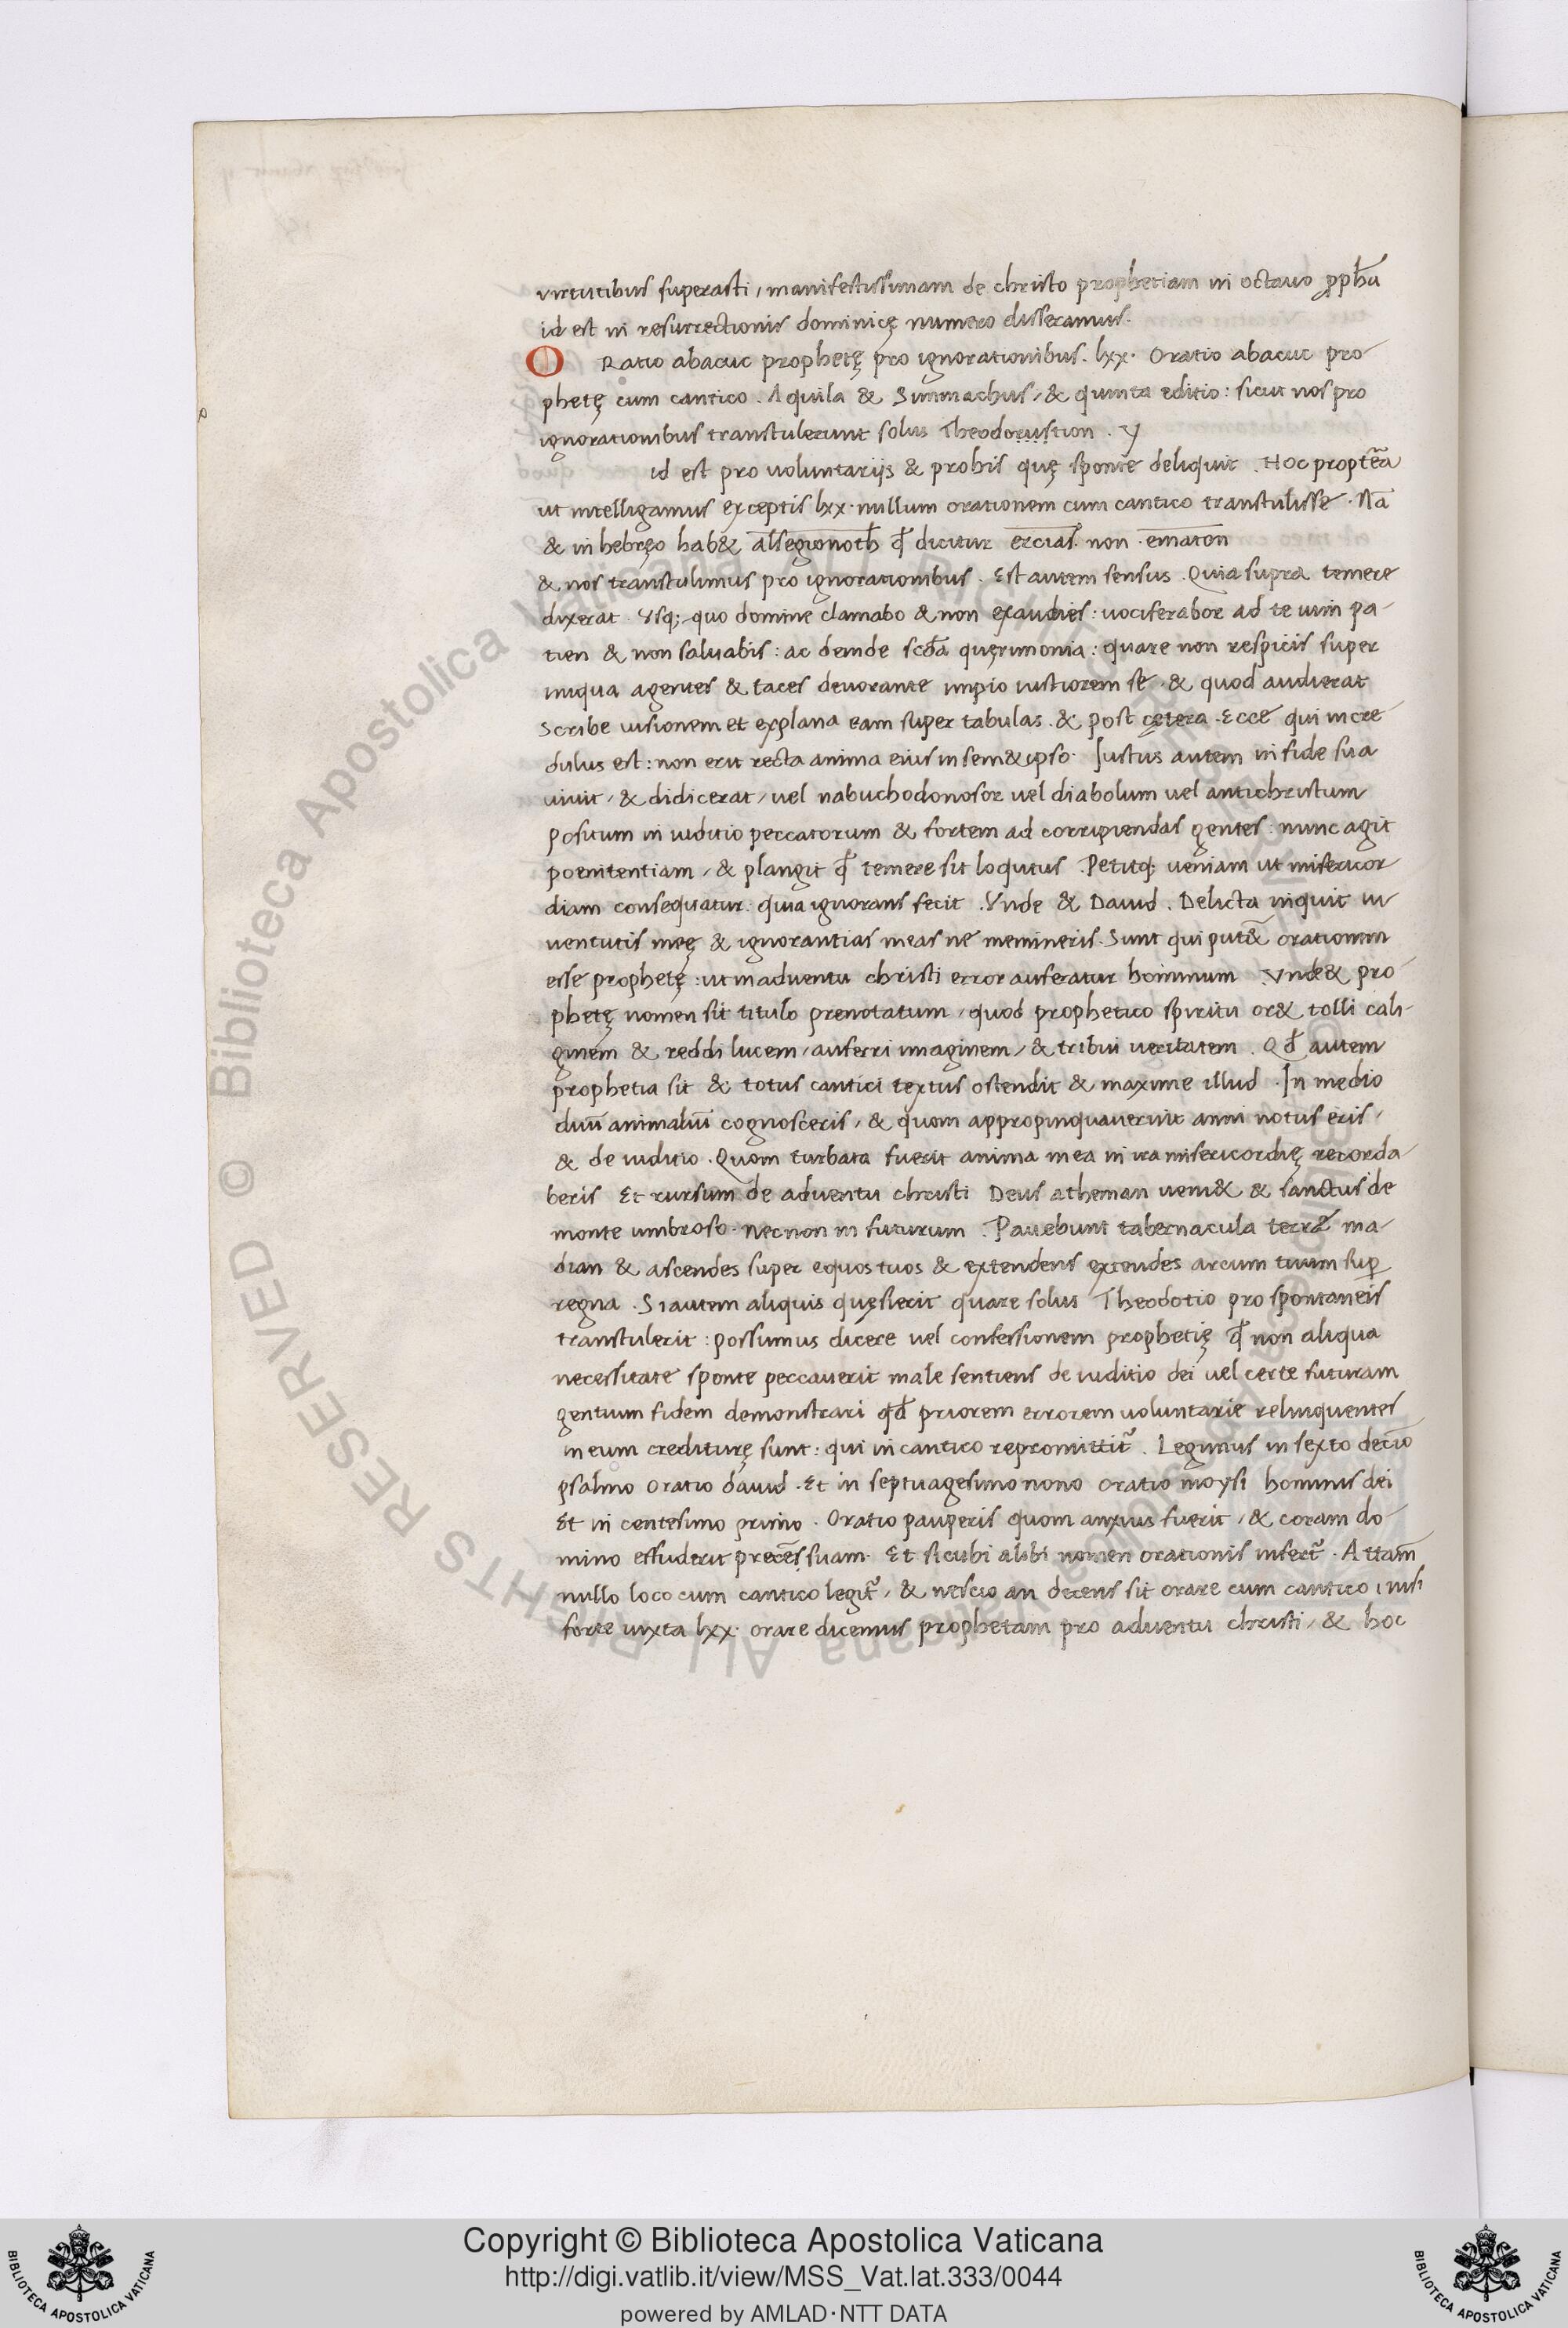 virtutibus superasti, manifestissimam de christo prophetiam in octavo ꝓph̄a
id est in resurrectionis dominicę numero disseramus.
O Ratio abacuc prophetę pro ignorationibus. lxx. Oratio abacuc pro-
phetę cum cantico. Aquila & Simmachus, & quinta editio: sicut nos pro
ignorationibus transtulerunt solus Theodorustion. y
id est pro voluntarijs & probis quę sponte deliquit. Hoc propt̄ea
ut intelligamus exceptis lxx. nullum orationem cum cantico transtulisse. Nā
& in hebręo hab& alsegionoth qđ dicitur ercias. non. ematon
& nos transtulimus pro ignorationibus. Est autem sensus. Quia supra temere
dixerat. Vsq; quo domine clamabo & non exaudies: vociferabor ad te uim pa-
tien & non salvabis: ac deinde scd̄a quęrimonia: quare non respicis super
iniqua agentes & taces devorante impio iustiorem se, & quod audierat
Scribe visionem et explana eam super tabulas. & post cętera. Ecce qui incre
dulus est: non erit recta anima eius in sem&ipso. Iustus autem in fide sua
vivit, & didicerat, vel nabuchodonosor vel diabolum vel antichristum
positum in iuditio peccatorum & fortem ad corripiendas gentes: nunc agit
poenitentiam, & plangit qđ temere sit loqutus. Petitq; veniam ut misericor
diam consequatur. quia ignorans fecit. Vnde & David. Delicta inquit iu
ventutis meę & ignorantias meas ne memineris. Sunt qui put&̄ orationem
esse prophetę: ut in adventu christi error auferatur hominum. Vnde & pro-
phetę nomen sit titulo prenotatum, quod prophetico spiritu or& tolli cali-
ginem & reddi lucem, auferri imaginem, & tribui veritatem. Qđ autem
prophetia sit & totus cantici textus ostendit & maxime illud. In medio
duū animaliū cognosceris, & quom appropinquaverint anni notus eris,
& de iuditio. Quom turbata fuerit anima mea in ira misericordię recorda-
beris Et rursum de adventu christi Deus atheman veni& & sanctus de
monte umbroso. Necnon in futurum. Pavebunt tabernacula terræ ma-
dian & ascendes super equos tuos & extendens extendes arcum tuum suꝑ
regna. Si autem aliquis quęsierit quare solus Theodotio pro spontaneis
transtulerit: possumus dicere vel confessionem prophetię qđ non aliqua
necessitate sponte peccaverit male sentiens de iuditio dei vel certe futuram
gentium fidem demonstrari qđ priorem errorem voluntarie relinquentes
in eum crediturę sunt: qui in cantico repromittit̃. Legimus in sexto decīo
psalmo Oratio david. Et in septuagesimo nono oratio moysi hominis dei
Et in centesimo primo. Oratio pauperis quom anxius fuerit, & coram do-
mino effuderit preces̄ suam. Et sicubi alibi nomen orationis insert̃. Attam̄
nullo loco cum cantico legit̃, & nescio an decens sit orare cum cantico, nisi
forte iuxta lxx. orare dicemus prophetam pro adventu christi, & hoc
Copyright © Biblioteca Apostolica Vaticana
http://digi.vatlib.it/view/MSS_Vat.lat.333/0044
powered by AMLAD·NTT DATA
BIBLIOTECA APOSTOLICA VATICANA
BIBLIOTECA APOSTOLICA VATICANA
© Biblioteca Apostolica Vaticana ALL RIGHTS RESERVED